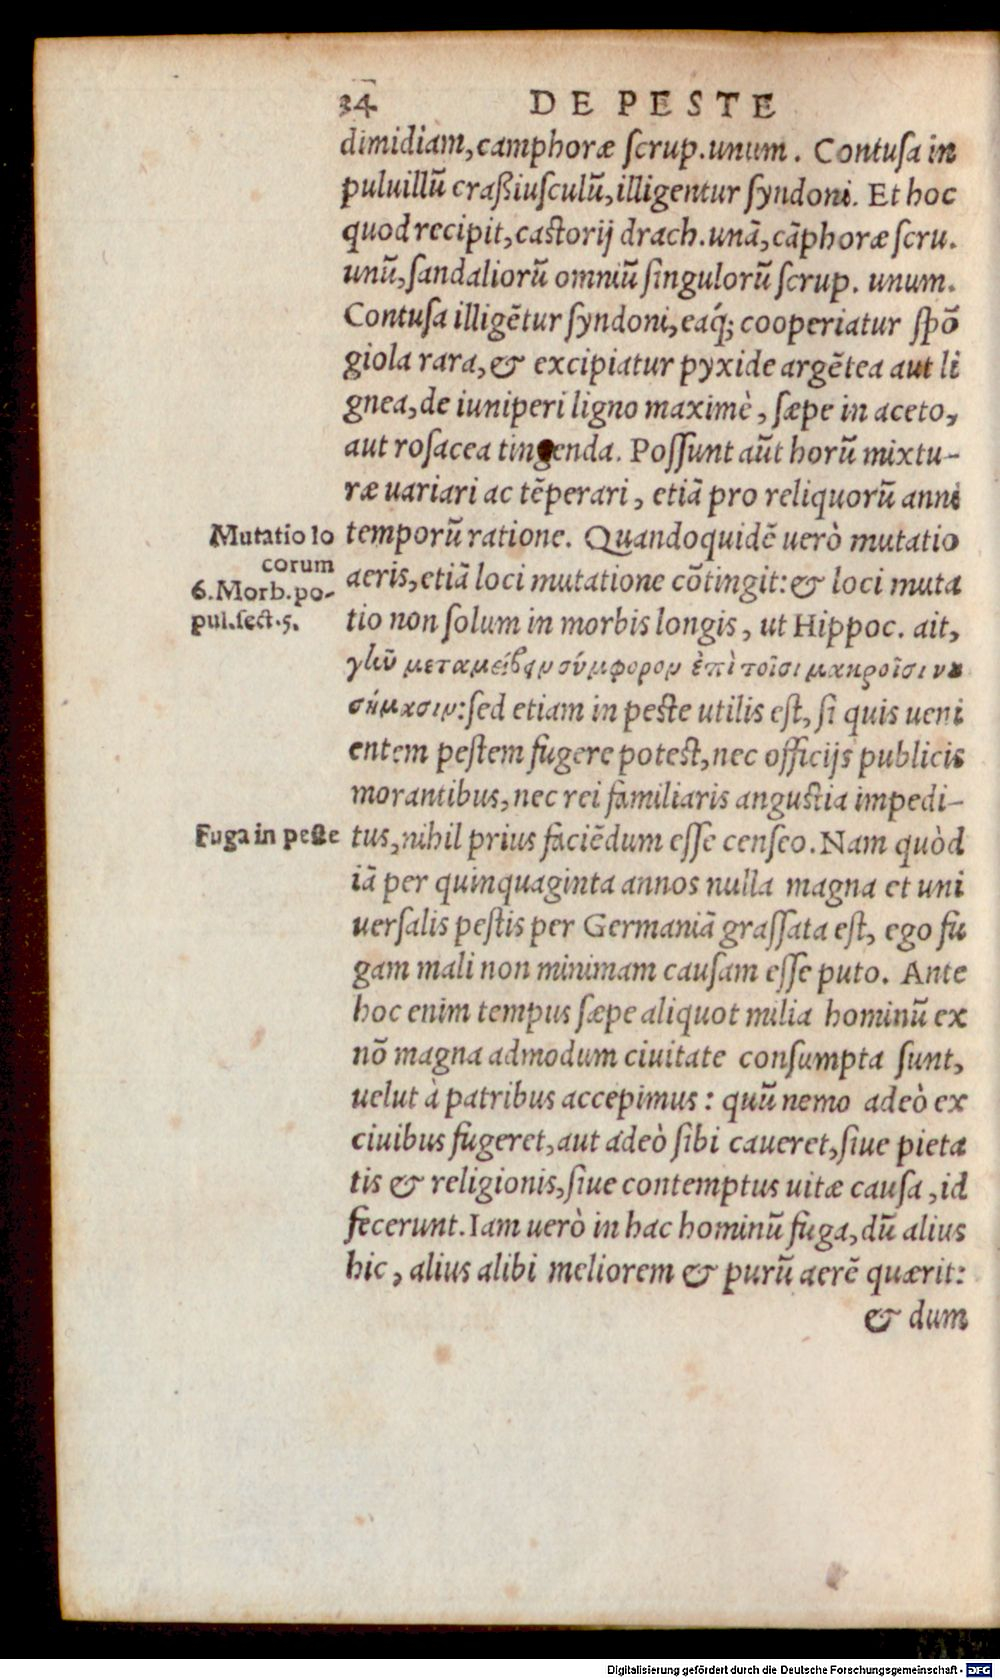 34 DE PESTE
dimidiam, camphoræ ſcrup. unum. Contuſa in
puluillū craßiuſculū, illigentur ſyndoni. Et hoc
quod recipit, caſtorij drach. unā, cāphoræ ſcru.
unū, ſandaliorū omniū ſingulorū ſcrup. unum.
Contuſa illigētur ſyndoni, eaq́; cooperiatur ſpō
giola rara, & excipiatur pyxide argētea aut li
gnea, de iuniperi ligno maximè, ſæpe in aceto,
aut roſacea tingenda. Poſſunt aūt horū mixtu-
ræ uariari ac tēperari, etiā pro reliquorū anni
Mutatio lo
corum
6. Morb. po-
pul. ſect. 5.
temporū ratione. Quandoquidē uerò mutatio
aeris, etiā loci mutatione cōtingit: & loci muta
tio non ſolum in morbis longis, ut Hippoc. ait,
γῆν μεταμείβειν σύμφορον ἐπὶ τοῖσι μακροῖσι νο
σήμασιν: ſed etiam in peſte utilis eſt, ſi quis ueni
entem peſtem fugere poteſt, nec officijs publicis
morantibus, nec rei familiaris anguſtia impedi-
Fuga in peſte
tus, nihil prius faciēdum eſſe cenſeo. Nam quòd
iā per quinquaginta annos nulla magna et uni
uerſalis peſtis per Germaniā graſſata eſt, ego fu
gam mali non minimam cauſam eſſe puto. Ante
hoc enim tempus ſæpe aliquot milia hominū ex
nō magna admodum ciuitate conſumpta ſunt,
uelut à patribus accepimus: quū nemo adeò ex
ciuibus fugeret, aut adeò ſibi caueret, ſiue pieta
tis & religionis, ſiue contemptus uitæ cauſa, id
fecerunt. Iam uerò in hac hominū fuga, dū alius
hic, alius alibi meliorem & purū aerē quærit:
& dum
Digitalisierung gefördert durch die Deutsche Forschungsgemeinschaft - DFG